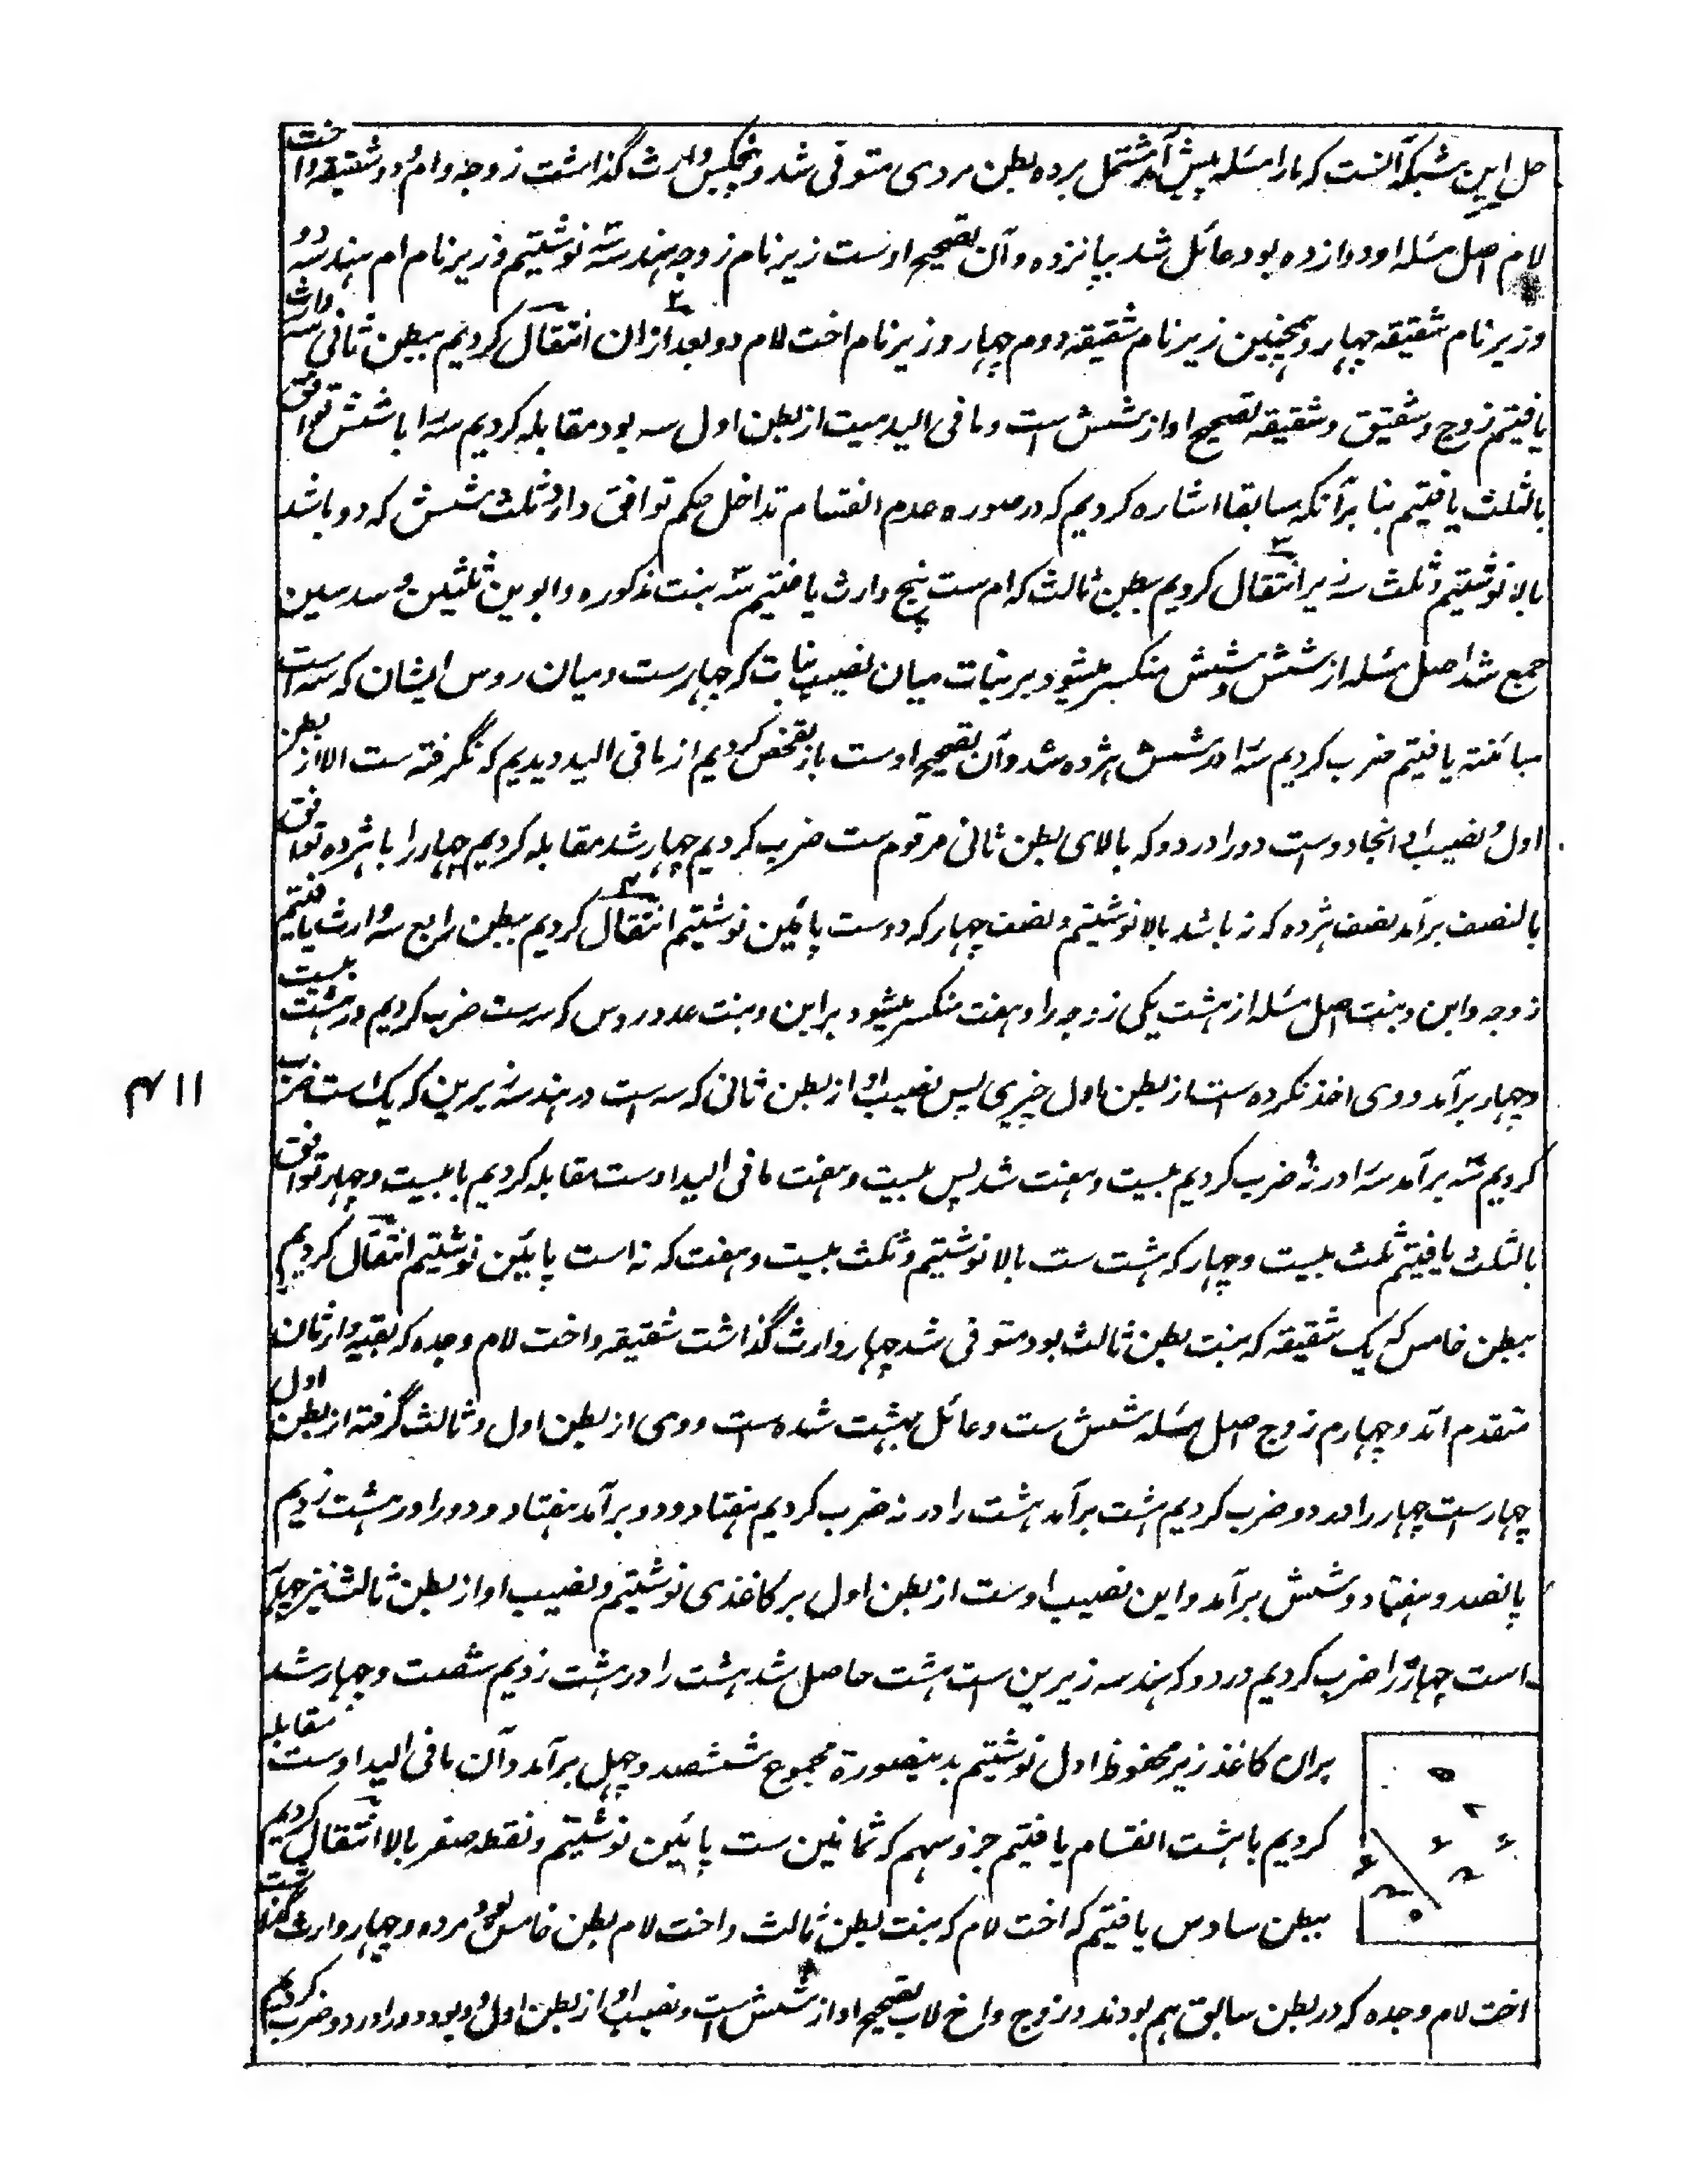 حل این شبکه آنست که ما را مسئله پیش آمد مشتمل بر ده بطن مردی متوفی شد و پنجکس وارث گذاشت زوجه و ام و دو شقیقه و اخت
لام اصل مسئله او دوازده بود عائل شد بپانزده و آن تصحیح اوست زیر نام زوجه هندسه سه نوشتیم و زیر نام ام هندسه دو
و زیر نام شقیقه چهار و همچنین زیر نام شقیقه دوم چهار و زیر نام اخت لام دو بعد ازان انتقال کردیم ببطن ثانی سه وارث
یافتیم زوج و شقیق و شقیقه تصحیح او از شش است و ما فی الید میت از بطن اول سه بود مقابله کردیم سه را با شش توافق
بالثلث یافتیم بنا بر آنکه سابقا اشاره کردیم که در صوره عدم انقسام تداخل حکم توافق دارد ثلث شش که دو باشد
بالا نوشتیم و ثلث سه زیر انتقال کردیم ببطن ثالث که ام ست پنج وارث یافتیم سه بنت مذکوره و ابوین ثلثین و سدسین
جمع شد اصل مسئله از شش و شش منکسر میشود بر بنات میان نصیب بنات که چهارست و میان روس ایشان که سه است
مبائنه یافتیم ضرب کردیم سه را در شش هژده شد و آن تصحیح اوست باز تفحص کردیم از ما فی الید دیدیم که نگرفته ست الا از بطن
اول و نصیب او انجا دوست دو را در دو که بالای بطن ثانی مرقوم ست ضرب کردیم چهار شد مقابله کردیم چهار را با هژده توافق
بالنصف برآمد نصف هژده که نه باشد بالا نوشتیم و نصف چهار که دوست پائین نوشتیم انتقال کردیم ببطن رابع سه وارث یافتیم
زوجه و ابن و بنت اصل مسئله از هشت یکی زوجه را و هفت منکسر میشود بر ابن و بنت عدد روس که سه ست ضرب کردیم در هشت بیست
و چهار برآمد و وی اخذ نکرده ست از بطن اول چیزی پس نصیب او از بطن ثانی که سه است در هندسه زیرین که یک است ضرب
کردیم سه برآمد سه را در نه ضرب کردیم بیست و هفت شد پس بیست و هفت ما فی الید اوست مقابله کردیم با بیست و چهار توافق
بالثلث یافتیم ثلث بیست و چهار که هشت ست بالا نوشتیم و ثلث بیست و هفت که نه است پائین نوشتیم انتقال کردیم
ببطن خامس که یک شقیقه که بنت بطن ثالث بود متوفی شد چهار وارث گذاشت شقیقه و اخت لام و جده که بقیه وارثان
متقدم اند و چهارم زوج اصل مسئله شش ست و عائل بهشت شده است و وی از بطن اول و ثالث گرفته از بطن اول
چهارست چهار را در دو ضرب کردیم هشت برآمد هشت را در نه ضرب کردیم هفتاد و دو برآمد هفتاد و دو را در هشت زدیم
پانصد و هفتاد و شش برآمد و این نصیب اوست از بطن اول بر کاغذی نوشتیم و نصیب او از بطن ثالث نیز چهار
است چهار را ضرب کردیم در دو که هندسه زیرین ست هشت حاصل شد هشت را در هشت زدیم شصت و چهار شد
بران کاغذ زیر محفوظ اول نوشتیم بدینصورة مجموع ششصد و چهل برآمد و آن ما فی الید اوست مقابله
کردیم با هشت انقسام یافتیم جزو سهم که ثمانین ست پائین نوشتیم و نقطه صفر بالا انتقال کردیم
ببطن سادس یافتیم که اخت لام که بنت بطن ثالث و اخت لام بطن خامس بود مرده و چهار وارث گذاشت
اخت لام و جده که در بطن سابق هم بودند و زوج و اخ لاب تصحیح او از شش است و نصیب او از بطن اول دو بود دو را در دو ضرب کردیم
۴۱۱